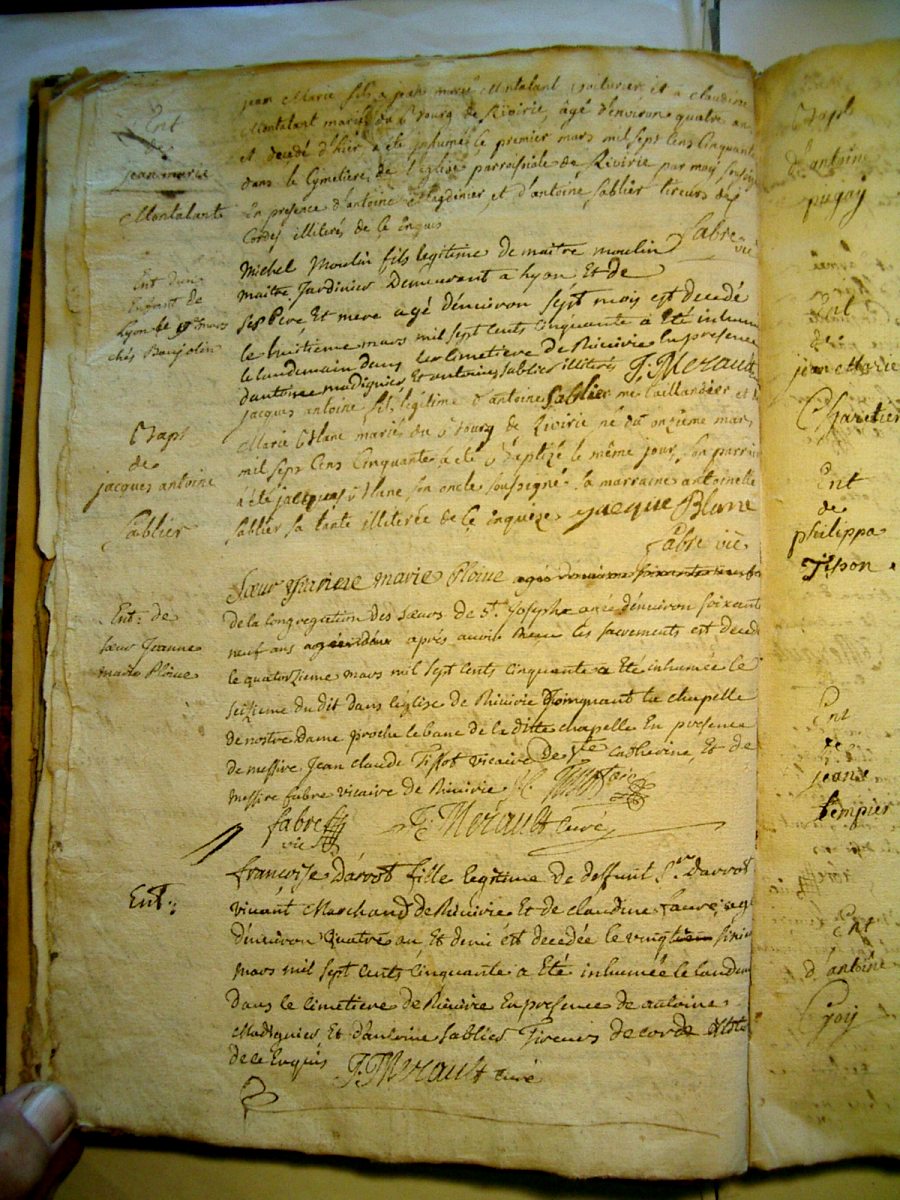 Ent
de
jean marie
Montalant
jean Marie fils a jean marie Montalant voiturier et a claudine
Montalant mariés du bourg de Rivirie, âgé d'environ quatre an
et decedé d'hier a été inhumé le premier mars mil sept cens cinquante
dans le Cymetiere de l'eglise parroissiale de Rivirie par moy soussig
en presence d'antoine Magdinier, et d'antoine Sablier tireurs de
Cordes illiterés de ce inquis
fabre vic
Ent d'un
enfant de
Lyon le 9e mars
chés Bonjolin
Michel Moulin fils legitime de maître moulin
maître Jardinier Demeurant a Lyon Et de
Ses Pére Et mere agé d'environ sépt mois est decedé
le huitieme mars mil sept cents cinquante a Eté inhum
le landemain dans le cimetiere de Riviric En presence
d'antoine madignier Et antoine sablier illiterés J: Merault
Bapt
de
jacques antoine
Sablier
jacques antoine fils legitime d'antoine Sablier me taillandier et
Marie Blanc mariés du bourg de Rivirie né du onzième mars
mil sept cens cinquante a été baptizé le même jour, son parrain
a été jacques Blanc son oncle soussigné sa marraine antoinette
Sablier sa tante illiterée de ce inquize jacque Blanc
fabre vic
Ent: de
sœur Jeanne
marie Ploiue
Sœur marie Ploiue
de la congregation des sœurs de St. Joseph agée d'environ soixante
neuf ans après avoir les sacrements est deced
le quatorzieme mars mil sept cents cinquante a Eté inhumée le
seizieme du dit dans l'eglise de Riviric joinquant la chapelle
de nostre Dame proche le banc de la ditte chapelle En presence
de messire Jean claude Tissot vicaire De Ste Catherine, Et de
Messire fabre vicaire de Riviric
fabre
vic
J: Merault curé
Ent:
françoise Darvot fille legitime De deffunt Sr. Darvot
vivant Marchand de Riviric Et de claudine faure, agé
d'environ quatre an Et demi est decedée le vingt
mars mil sept cents cinquante a Eté inhumée le landem
dans le cimetiere de Riviric En presence de antoine
Madignier Et d'antoine Sablier Tireurs de corde
de ce Enquis J: Merault curé
Bapt
d'antoine
pugoy
Ent
de
jean Marie
Charetier
Ent
de
philippa
Tisson
Ent
de
jeane
tempier
Ent
d'antoine